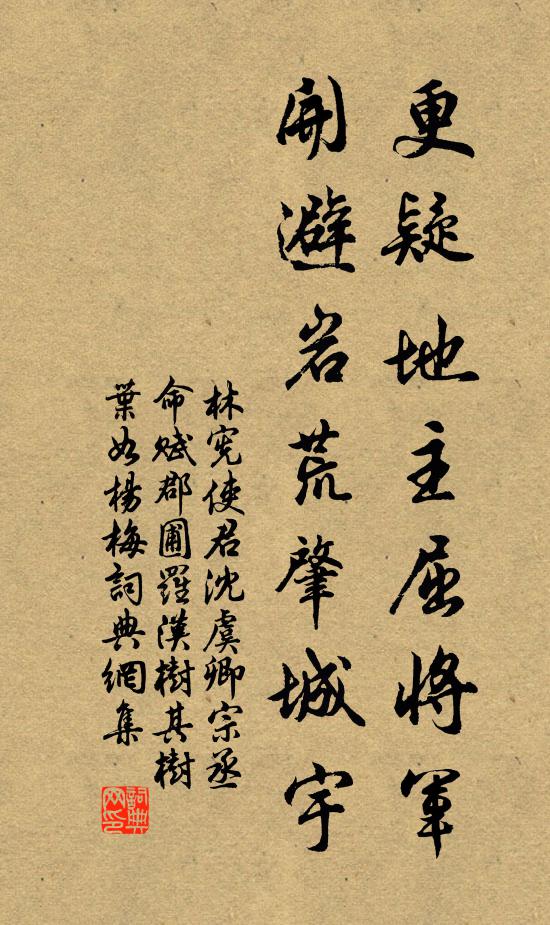 更疑地主屈將軍
開避岩荒肇城宇
林憲使君沈虞卿宗丞
命賦郡圃羅漢樹其樹
葉如楊梅詞典網集
詞典网印